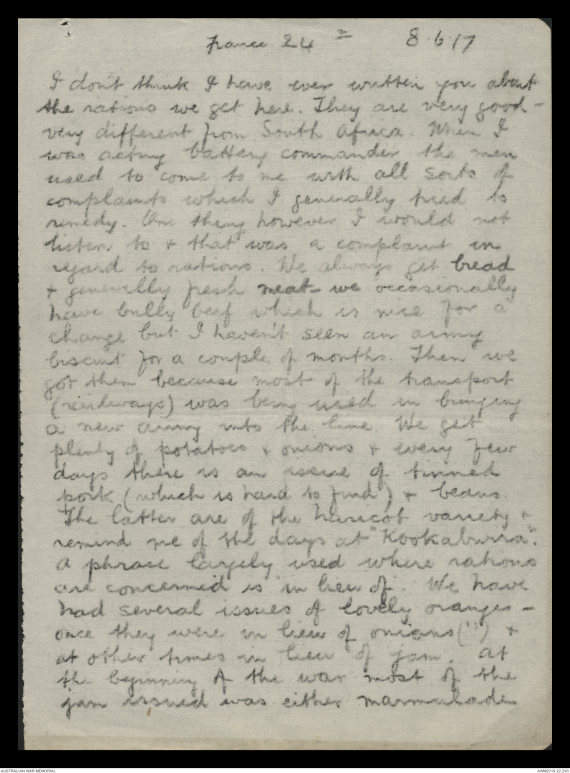 France 24 = 8.6.17
I don't think I have ever written you about
the rations we get here. They are very good -
very different from South Africa. When I
was acting battery commander the men
used to come to me with all sorts of
complaints which I generally tried to
remedy. One thing however I would not
listen to & that was a complaint in
regard to rations. We always get bread
& generally fresh meat - we occasionally
have bully beef which is nice for a
change but I haven't seen an army
biscuit for a couple of months. Then we
got them because most of the transport
(railways) was being used in bringing
a new army into the line. We get
plenty of potatoes & onions & every few
days there is an issue of tinned
pork (which is hard to find) & beans.
The latter are of the haricot variety &
remind me of the days at "Kookaburra".
A phrase largely used where rations
are concerned is "in lieu of". We have
had several issues of lovely oranges -
once they were in lieu of onions (!!) &
at other times in lieu of jam. At
the beginning of the war most of the
jam issued was either marmalade
AUSTRALIAN WAR MEMORIAL